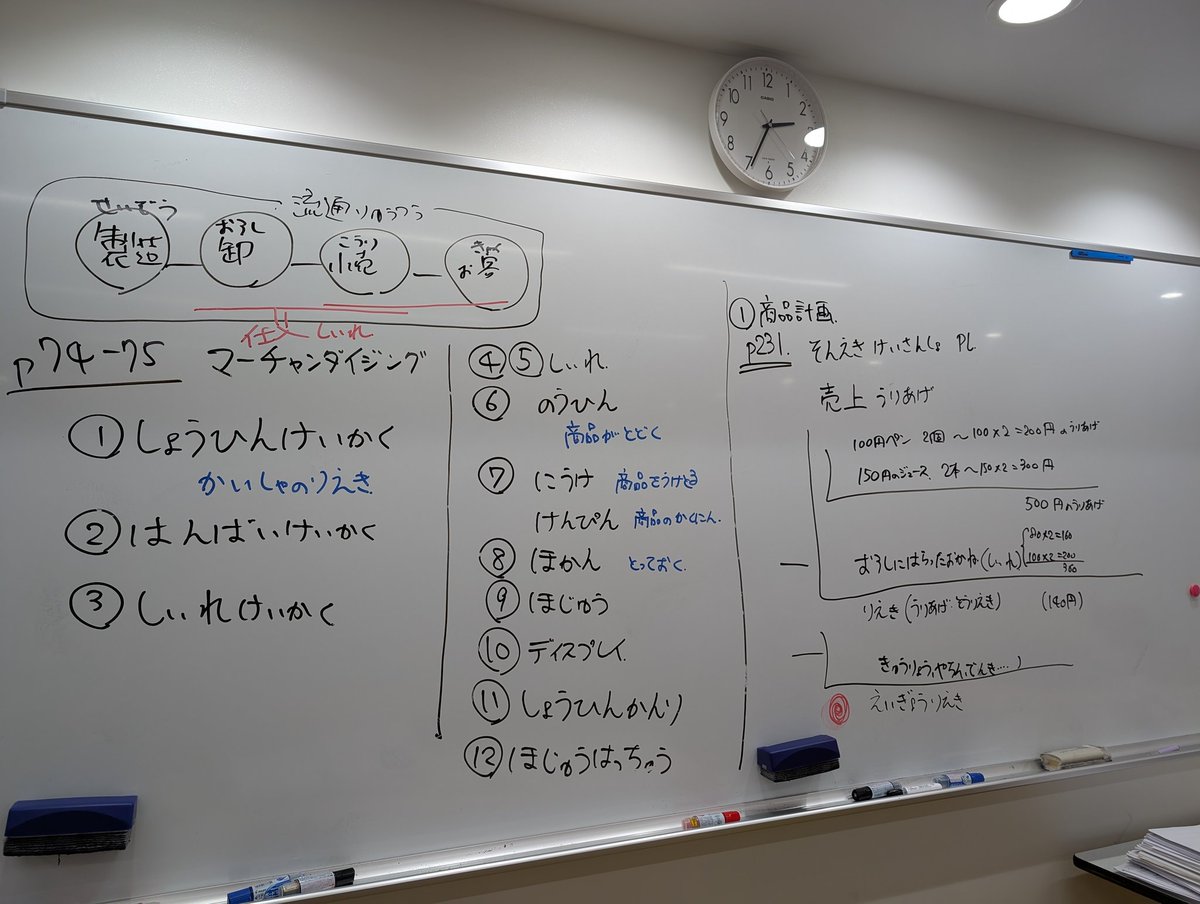 流通りゅうつう
せいぞう
製造
おろし
卸
こうり
小売
きゃく
お客
仕入 しいれ
p74-75 マーチャンダイジング
① しょうひんけいかく
かいしゃのりえき
② はんばいけいかく
③ しいれけいかく
④⑤ しいれ
⑥ のうひん
商品がとどく
⑦ にうけ 商品をうけとる
けんぴん 商品のかくにん.
⑧ ほかん とっておく.
⑨ ほじゅう
⑩ ディスプレイ.
⑪ しょうひんかんり
⑫ ほじゅうはっちゅう
① 商品計画.
p231. そんえき けいさんしょ PL
売上 うりあげ
100円ペン 2個 〜100×2=200円のうりあげ
150円のジュース. 2本 〜150×2=300円
500円のうりあげ
80×2=160
— おろしにはらったおかね(しいれ) 100×2=200
360
りえき(うりあげそうりえき) (140円)
— きゅうりょう、やちん、でんき....)
えいぎょうりえき
12
1
2
3
4
5
6
7
8
9
10
11
CASIO